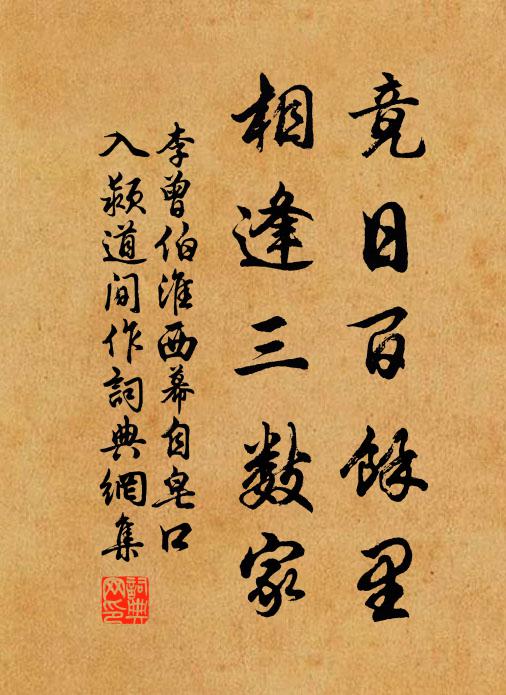 竟日百餘里
相逢三數家
李曾伯淮西幕自皂口
入潁道间作詞典網集
詞典网印